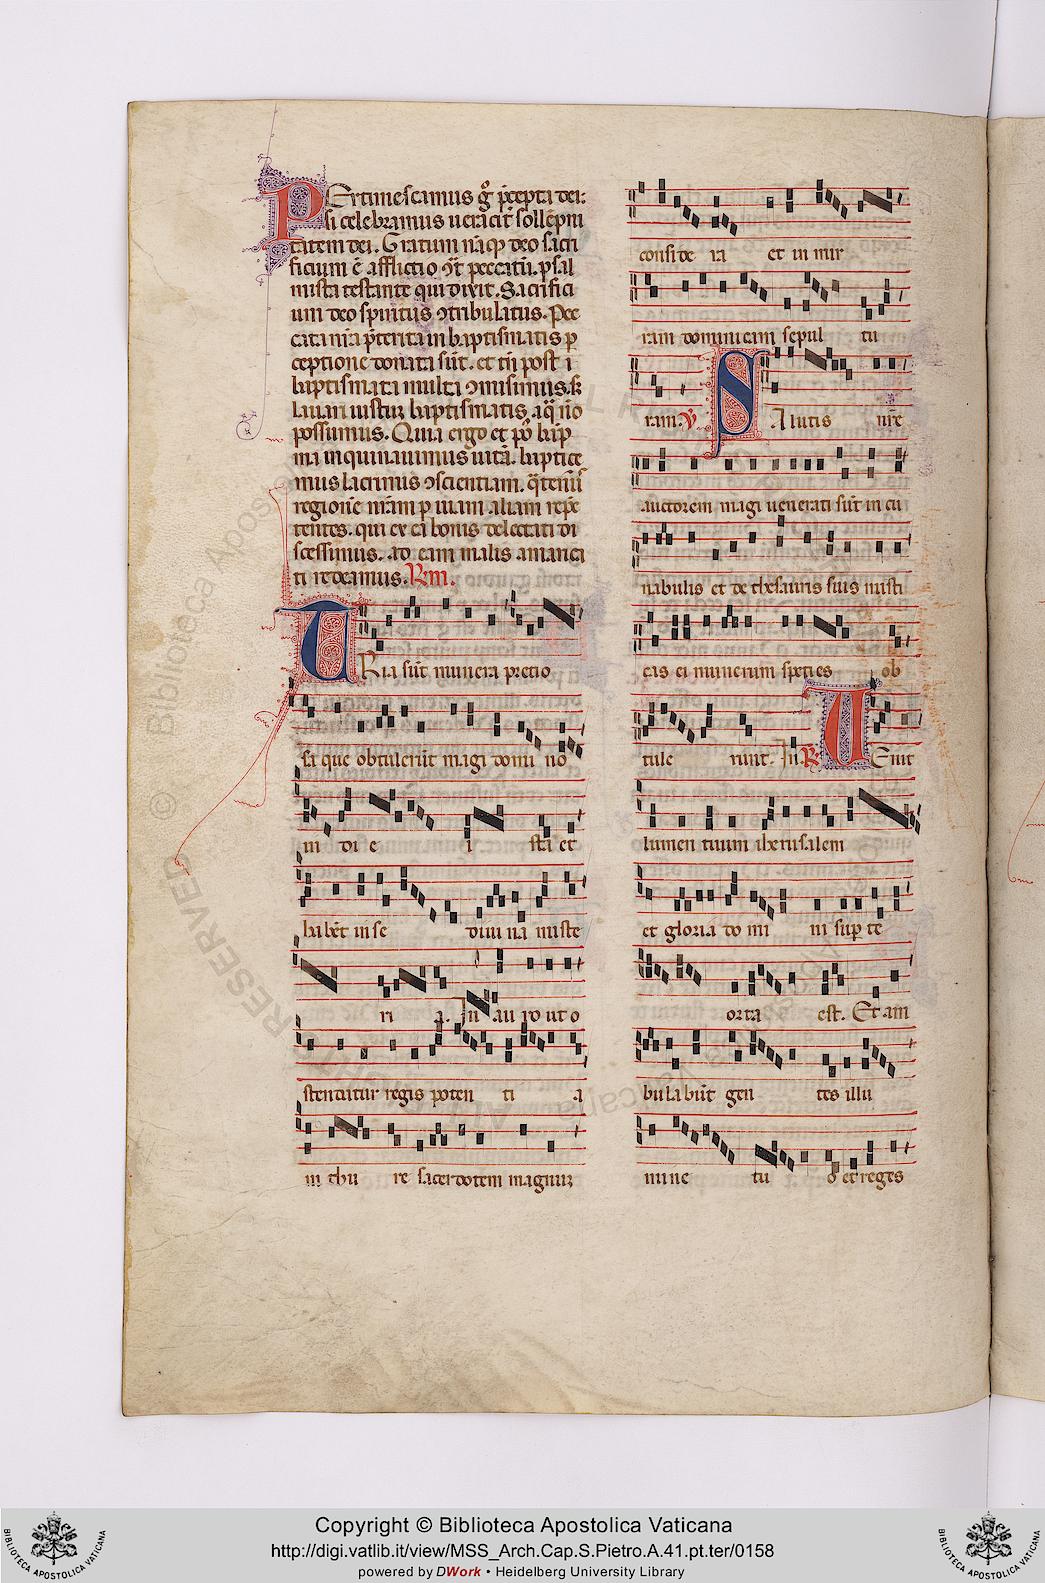 PErtimescamus gͦ p̄cepta dei:
si celebramus ueracit̄ sollēpni
tatem dei. Gratum nāq; deo sacri
ficium ē afflictio ɔt̄ peccatū. psal
mista testante qui dixit. Sacrifici
um deo spiritus ɔtribulatus. Pec
cata nr̄a p̄terita in baptismatis p
ceptione donata sūt. et tn̄ post
baptismata multa ɔmisimus. sꝫ
lauari iustuꝫ baptismatis. aq̄ nō
possumus. Quia ergo et pꝰ bap
ma inquinauimus uitā. baptice
mus lacrimis ɔscientiam. q̄tenus
regionē nr̄am p uiam aliam repe
tentes. qui ex ea bonis delectati di
scessimus. ad eam malis amarica
ti redeamus. Rm.
TRia sūt munera pretio
sa que obtulerūt magi domi no
in di e i sta et
habēt in se diui na miste
ri a. In au ro ut o
stendatur regis poten ti a
in thu re sacerdotem magnuꝫ
conside ra et in mir
ram dominicam sepul tu
ram. V. SAlutis nr̄e
auctorem magi uenerati sūt in cu
nabulis et de thesauris suis misti
cas ei munerum speties ob
tule runt. In R. UEnit
lumen tuum iherusalem
et gloria do mi ni sup te
orta est. Et am
bulabūt gen tes illu
mine tu o et reges
Copyright © Biblioteca Apostolica Vaticana
http://digi.vatlib.it/view/MSS_Arch.Cap.S.Pietro.A.41.pt.ter/0158
powered by DWork • Heidelberg University Library
BIBLIOTECA APOSTOLICA VATICANA
BIBLIOTECA APOSTOLICA VATICANA